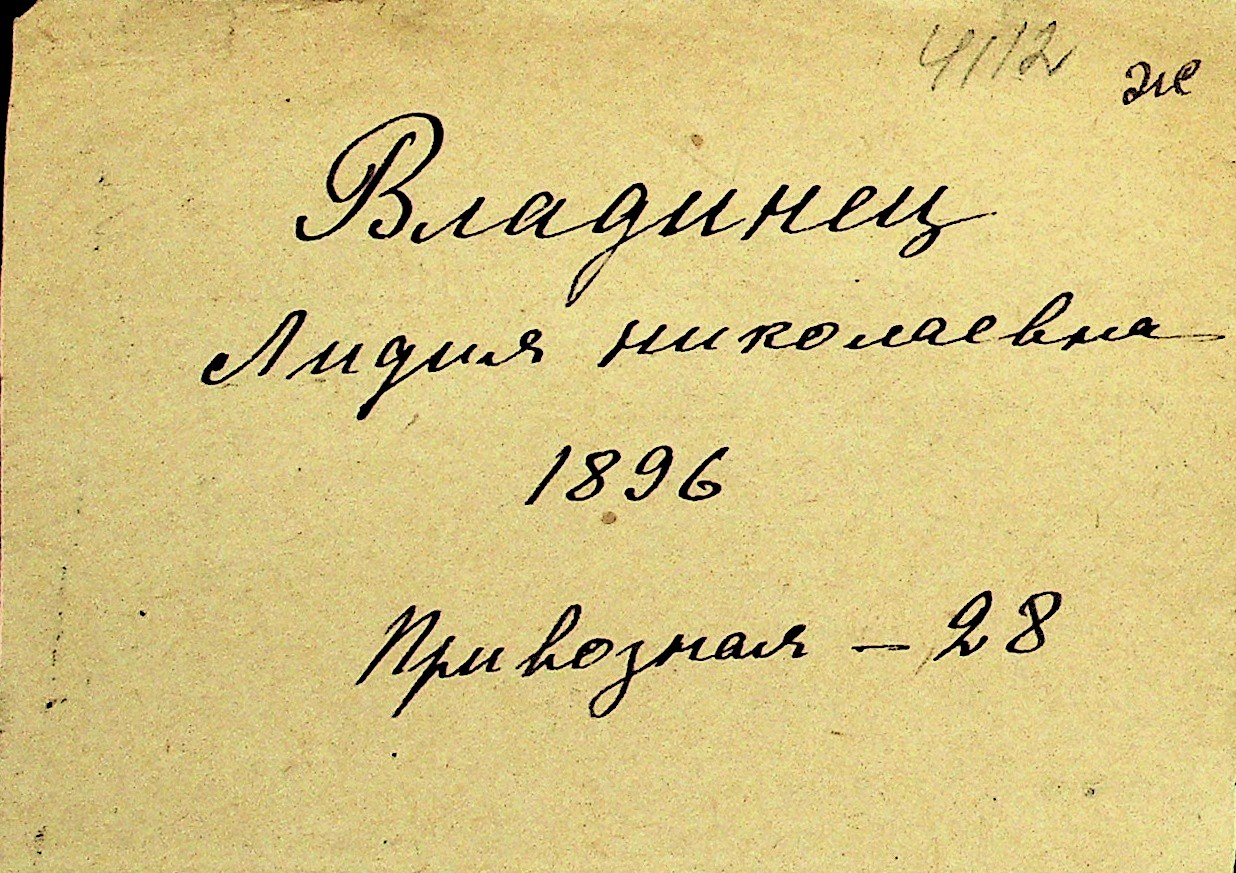 4112 ж
Владинец
Лидия николаевна
1896
Привозная – 28